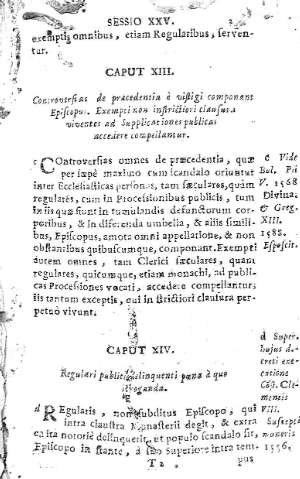 SESSIO XXV.
exemptis omnibus, etiam Regularibus, serven-
tur.
CAPUT XIII.
Controversias de præcedentia è vestigi component
Episcopi. Exempti non in strictiori clausura
viventes ad Supplicationes publicas
accedere compellantur.
c COntroversias omnes de præcedentia, quæ
per sæpè maximo cum scandalo oriuntur
inter Ecclesiasticas personas, tam sæculares, quàm
regulares, cum in Processionibus publicis, tum
in iis quæ fiunt in tumulandis defunctorum cor-
poribus, & in deferenda umbella, & aliis simili-
bus, Episcopus, amota omni appellatione, & non
obstantibus quibuscumque, componant. Exempti
autem omnes, tam Clerici sæculares, quàm
regulares, quicumque, etiam monachi, ad publi-
cas Processiones vocati, accedere compellantur;
iis tantum exceptis, qui in strictiori clausura per-
petuò vivunt.
c Vide
Bol. Pii
V. 1568
Divina.
& Greg.
XIII.
1582.
Exposcit.
CAPUT XIV.
Regulari publicè delinquenti pœna à quo
irroganda.
d REgularis, non subditus Episcopo, qui
intra claustra Monasterii degit, & extra
ea ita notoriè deliquerit, ut populo scandalo sit,
Episcopo instante, à suo Superiore intra tem-
d Super
hujus de-
creti exe-
cutione
Cōst. Cle-
mentis
VIII.
Suscepti
muneris
1596.
T 2 pus